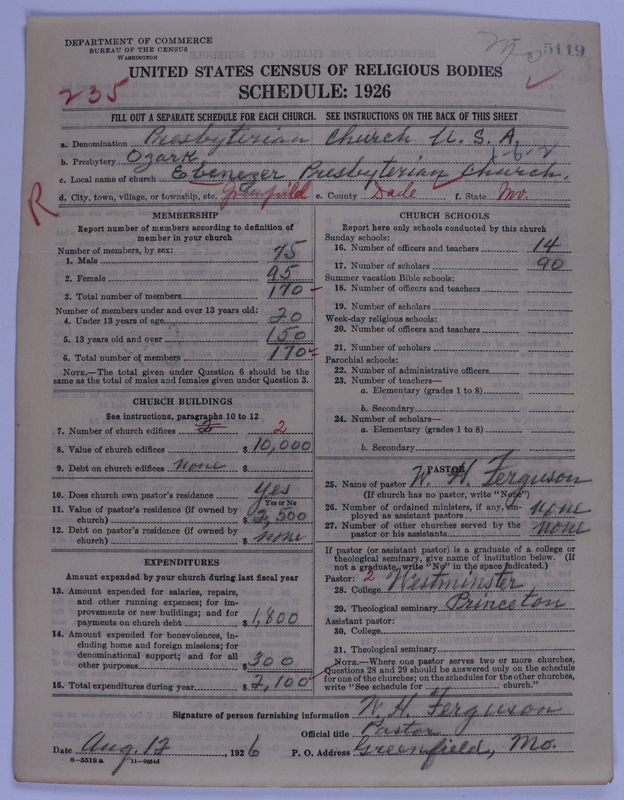 DEPARTMENT OF COMMERCE
BUREAU OF THE CENSUS
WASHINGTON
5119
UNITED STATES CENSUS OF RELIGIOUS BODIES
235
SCHEDULE: 1926
FILL OUT A SEPARATE SCHEDULE FOR EACH CHURCH. SEE INSTRUCTIONS ON THE BACK OF THIS SHEET
a. Denomination Presbyterian Church U. S. A.
b. Presbytery Ozark
c. Local name of church Ebenezer Presbyterian Church.
R d. City, town, village, or township, etc. Greenfield e. County Dade f. State Mo.
MEMBERSHIP
Report number of members according to definition of
member in your church
Number of members, by sex:
1. Male 75
2. Female 95
3. Total number of members 170
Number of members under and over 13 years old:
4. Under 13 years of age 20
5. 13 years old and over 150
6. Total number of members 170
NOTE.—The total given under Question 6 should be
same as the total of males and females given under Question 3.
CHURCH BUILDINGS
See instructions, paragraphs 10 to 12
7. Number of church edifices 2 2
8. Value of church edifices $10,000
9. Debt on church edifices none $
10. Does church own pastor's residence Yes
Yes or No
11. Value of pastor's residence (if owned by
church) $2,500
12. Debt on pastor's residence (if owned by
church) $ none
EXPENDITURES
Amount expended by your church during last fiscal year
13. Amount expended for salaries, repairs,
and other running expenses; for im-
provements or new buildings; and for
payments on church debt $1,800
14. Amount expended for benevolences, in-
cluding home and foreign missions; for
denominational support; and for all
other purposes $300
15. Total expenditures during year $2,100
CHURCH SCHOOLS
Report here only schools conducted by this church
Sunday schools:
16. Number of officers and teachers 14
17. Number of scholars 90
Summer vacation Bible schools:
18. Number of officers and teachers
19. Number of scholars
Week-day religious schools:
20. Number of officers and teachers
21. Number of scholars
Parochial schools:
22. Number of administrative officers
23. Number of teachers—
a. Elementary (grades 1 to 8)
b. Secondary
24. Number of scholars—
a. Elementary (grades 1 to 8)
b. Secondary
PASTOR
25. Name of pastor W. H. Ferguson
(If church has no pastor, write "None")
26. Number of ordained ministers, if any, em-
ployed as assistant pastors none
27. Number of other churches served by the
pastor or his assistants none
If pastor (or assistant pastor) is a graduate of a college or
theological seminary, give name of institution below. (If
not a graduate, write "No" in the space indicated.)
Pastor: 2
28. College Westminster
29. Theological seminary Princeton
Assistant pastor:
30. College
31. Theological seminary
NOTE.—Where one pastor serves two or more churches,
Questions 28 and 29 should be answered only on the schedule
for one of the churches; on the schedules for the other churches,
write "See schedule for church."
Signature of person furnishing information W. H. Ferguson
Official title Pastor
Date Aug. 12, 1926 P. O. Address Greenfield, Mo.
8—5518 a